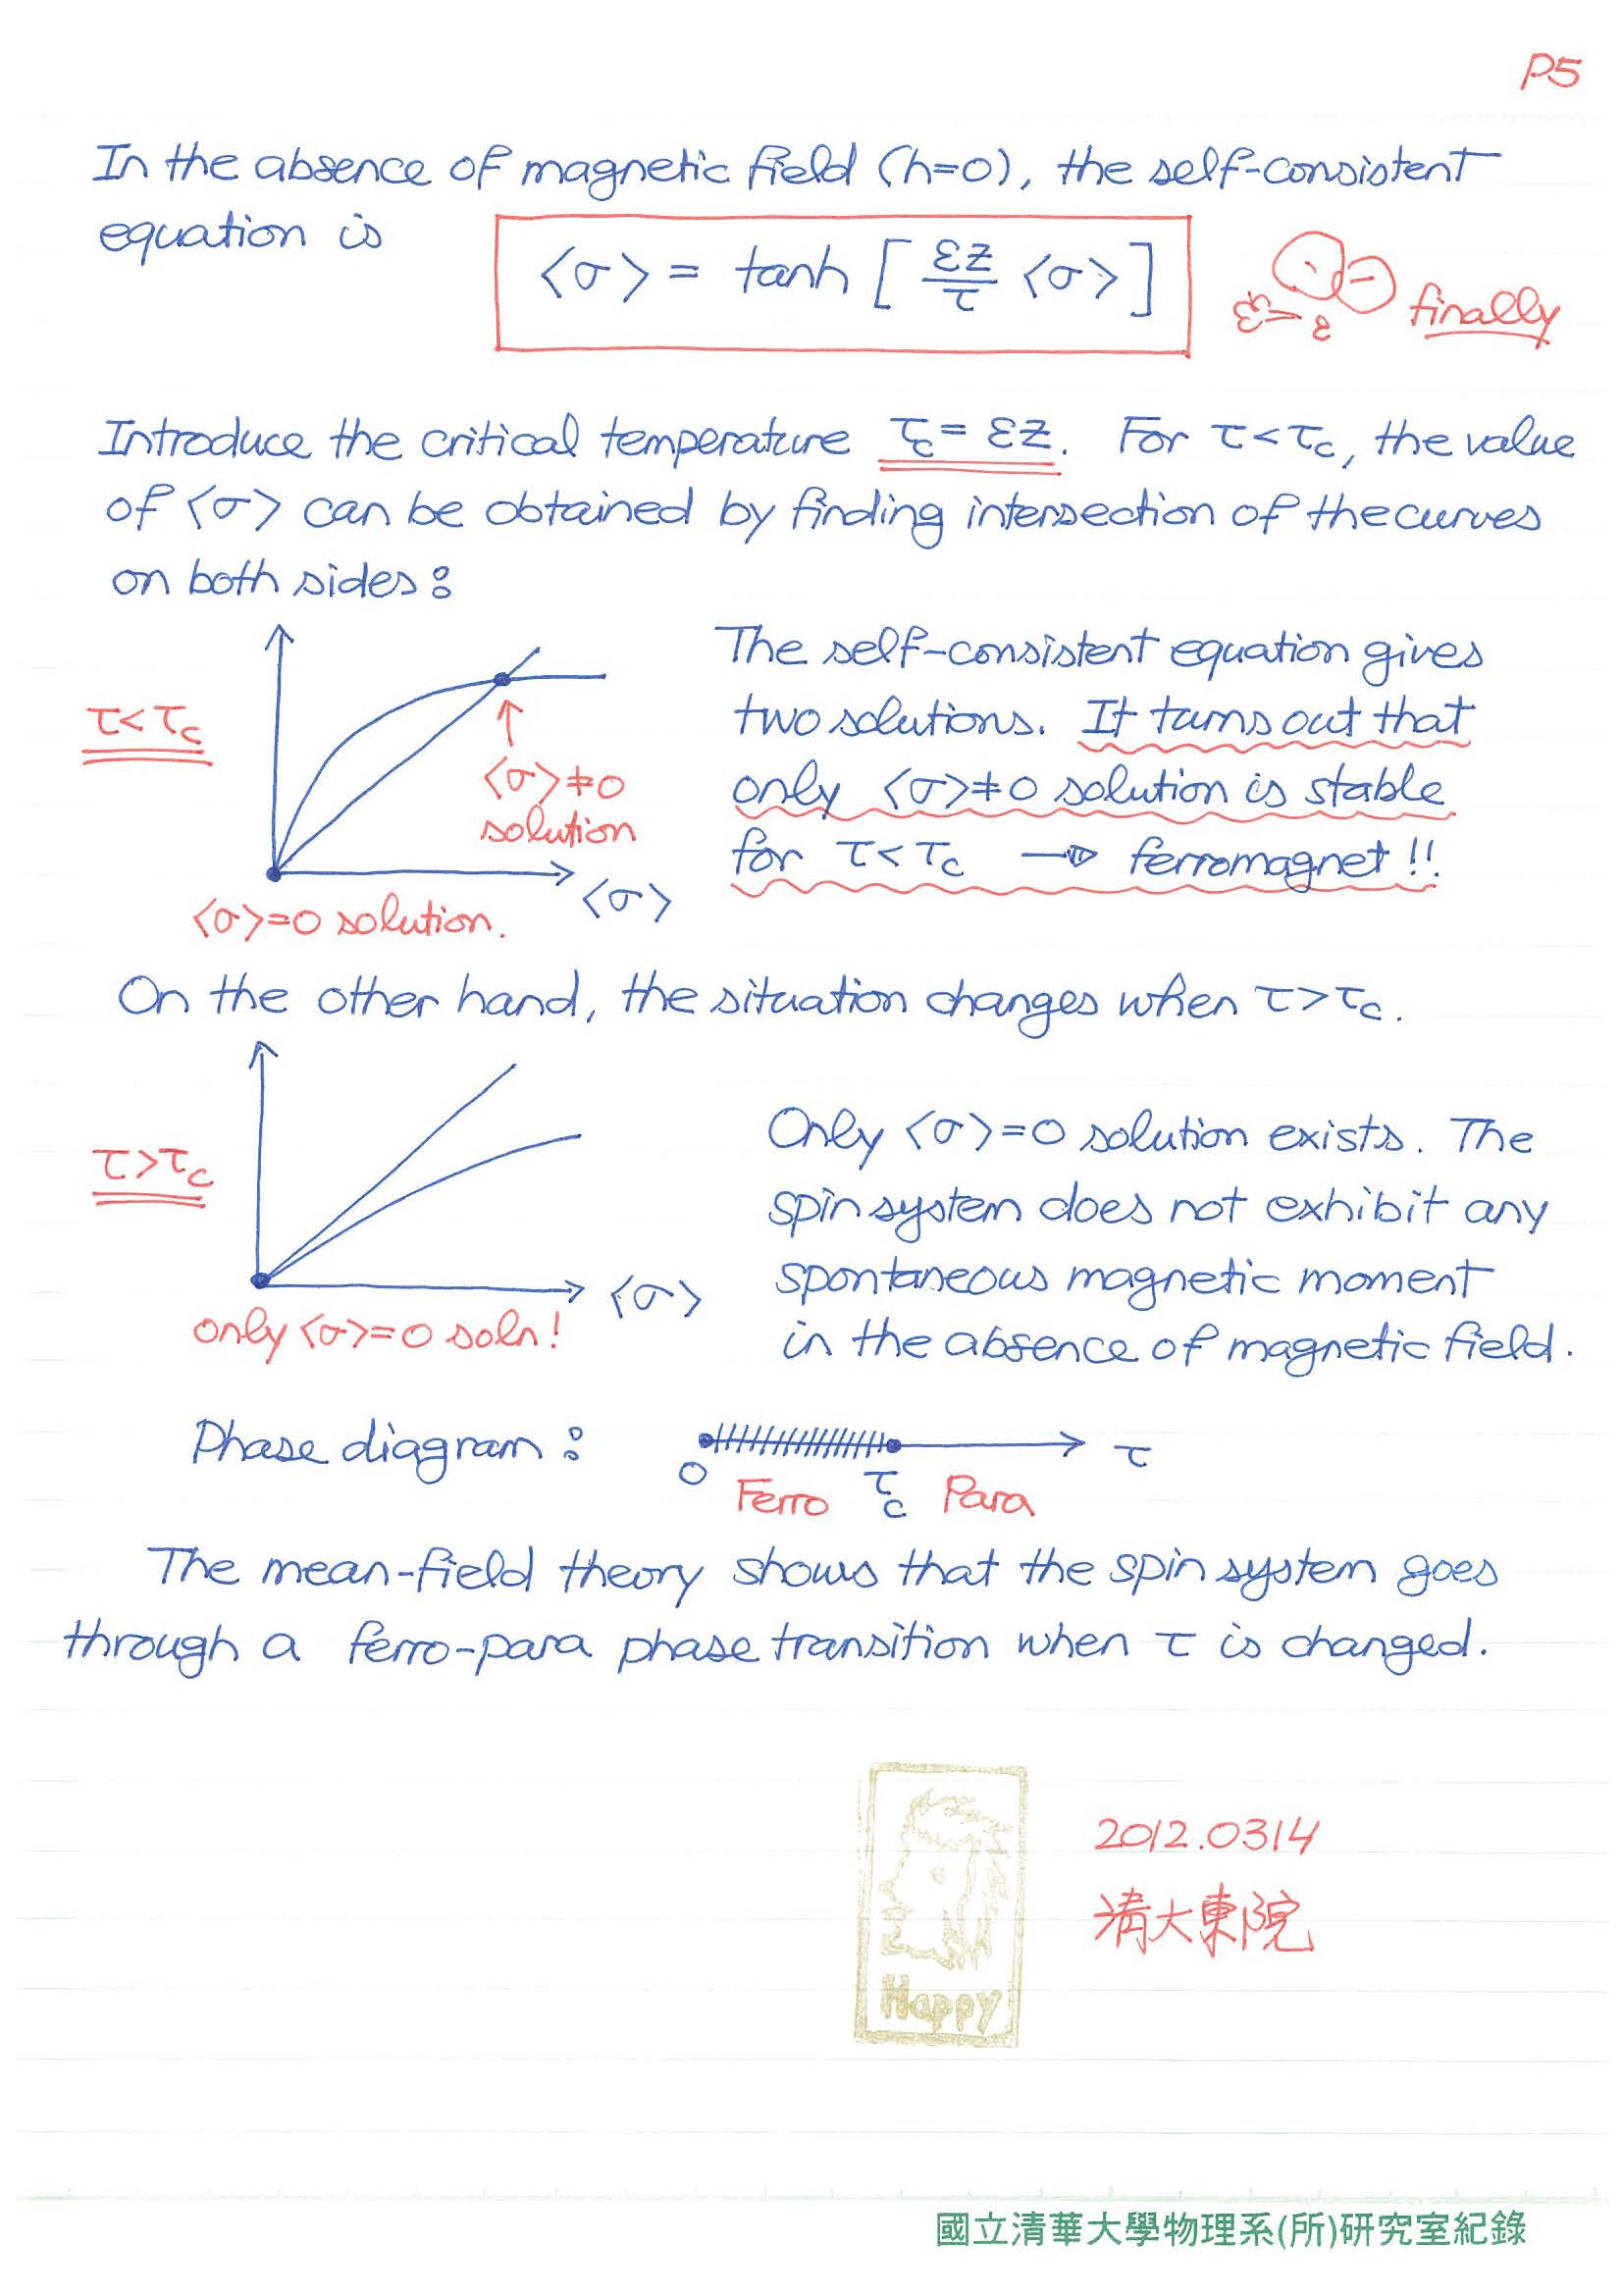 P5
In the absence of magnetic field (h=0), the self-consistent
equation is
⟨σ⟩ = tanh [ εz/τ ⟨σ⟩ ]
finally
Introduce the critical temperature τc = εz. For τ<τc, the value
of ⟨σ⟩ can be obtained by finding intersection of the curves
on both sides:
τ<τc
⟨σ⟩≠0
solution
⟨σ⟩
⟨σ⟩=0 solution.
The self-consistent equation gives
two solutions. It turns out that
only ⟨σ⟩≠0 solution is stable
for τ<τc → ferromagnet!!
On the other hand, the situation changes when τ>τc.
τ>τc
⟨σ⟩
only ⟨σ⟩=0 soln!
Only ⟨σ⟩=0 solution exists. The
spin system does not exhibit any
spontaneous magnetic moment
in the absence of magnetic field.
Phase diagram:
0 τc τ
Ferro Para
The mean-field theory shows that the spin system goes
through a ferro-para phase transition when τ is changed.
Happy
2012.0314
清大東院
國立清華大學物理系(所)研究室紀錄